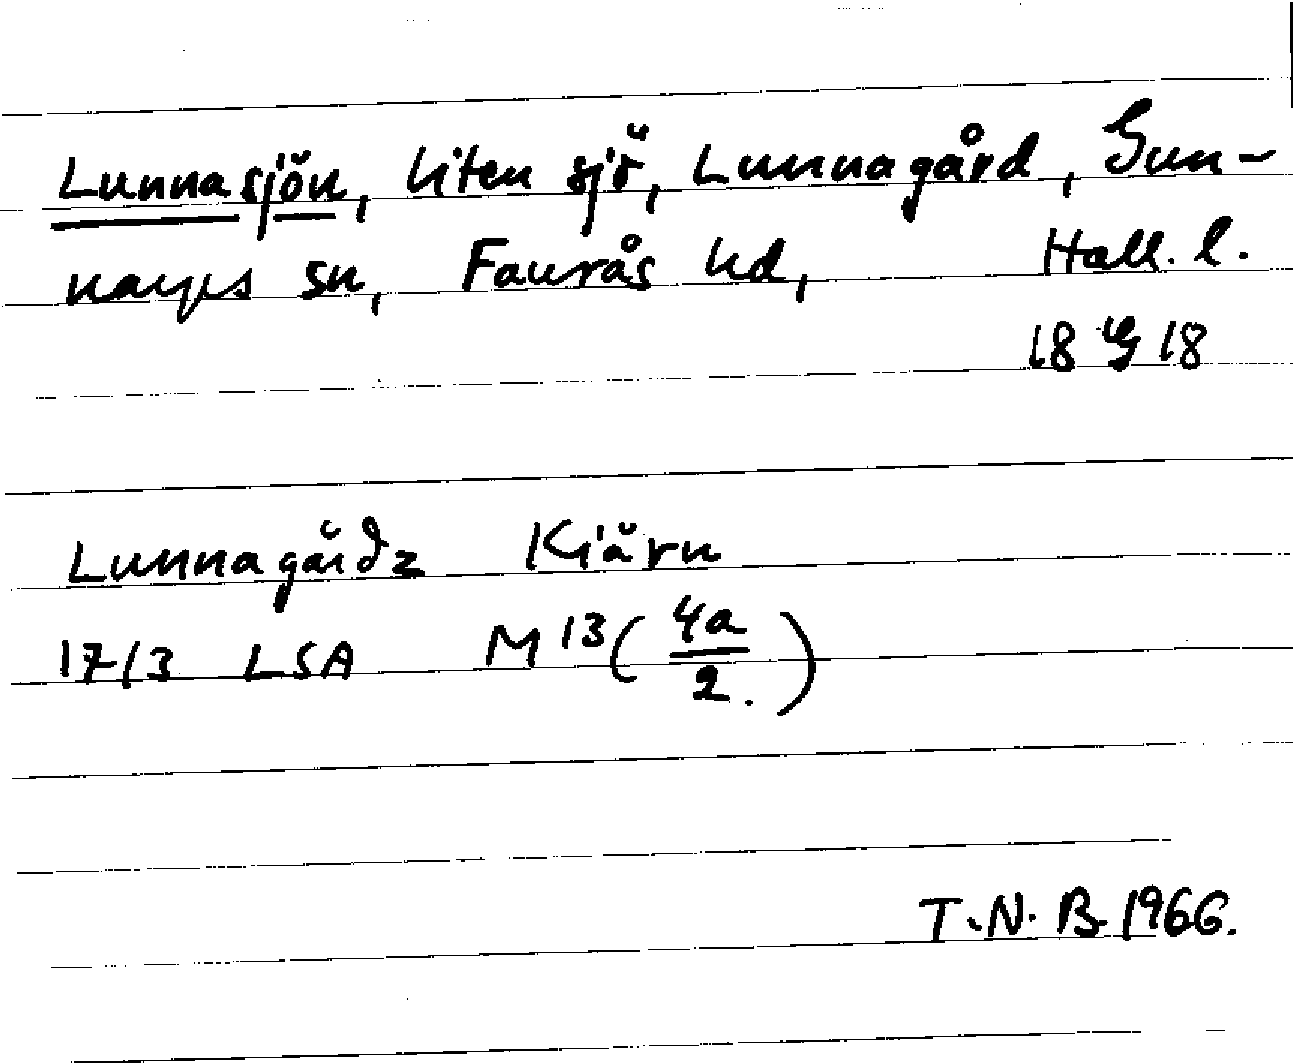 Lunnasjön, liten sjö, Lunnagård, Gun-
narps sn, Faurås hd, Hall. l.
18 G 18
Lunnagårdz Kiärn
1713 LSA M 13 (4a/2.)
T.N.B. 1966.